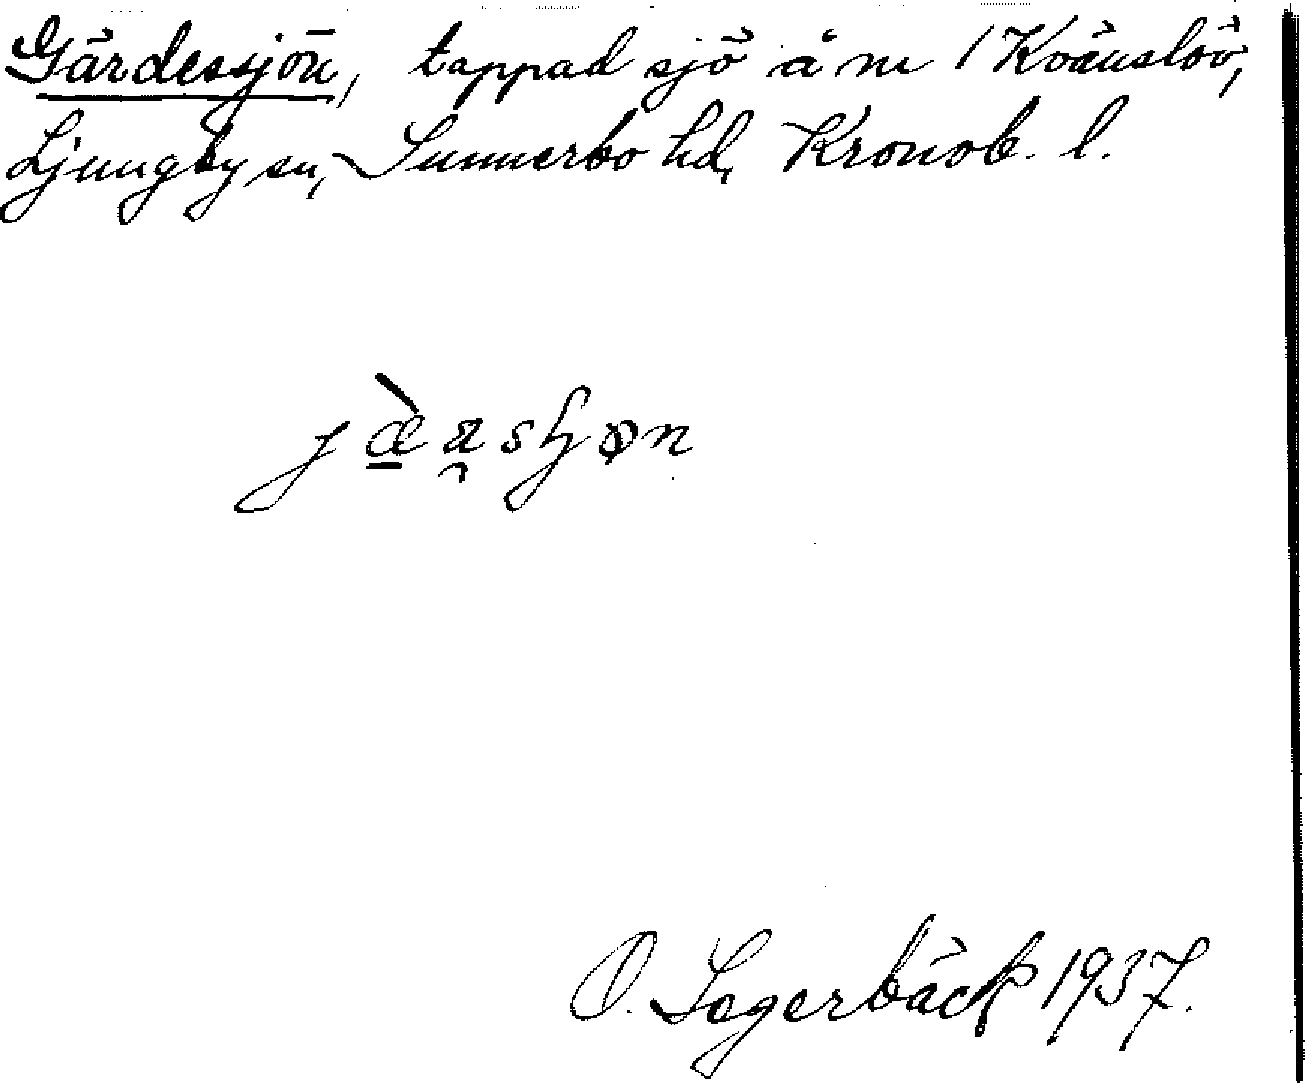 Gärdessjön, tappad sjö å m / Kvänslöv,
Ljungby sn, Sunnerbo hd, Kronob. l.
O. Lagerbäck 1937.